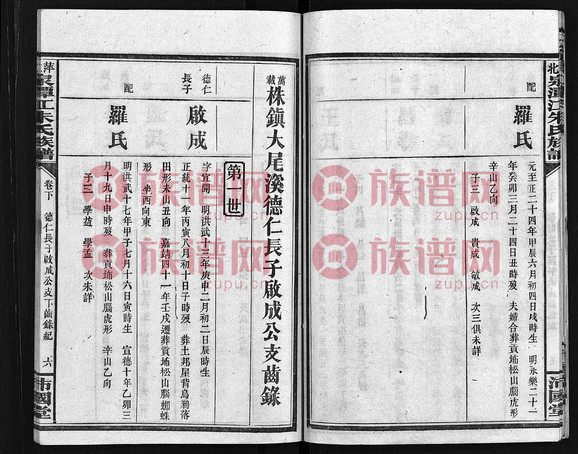 北泉潭江朱氏族譜
配
羅氏
元至正二十四年甲辰九月初四日戌時生 明永樂二十一
年癸卯三月二十四日丑時歿 夫婦合葬貢埇松山腦虎形
辛山乙向
子三 啟成 貴成 六 敏成 次三俱未詳
萬載 株鎮大尾溪德仁長子啟成公支齒錄
第一世
德仁長子
啟成
字宜開 明洪武十三年庚申二月初二日辰時生
正統十一年丙寅八月初十日子時歿 葬土邦屋背烏鴉落
田形未山丑向 嘉靖四十一年壬戌遷葬貢埇松山腦蜘蛛
形 坐西向東
配
羅氏
明洪武十七年甲子七月十六日寅時生 宣德十年乙卯三
月十九日申時歿 葬貢埇松山腦虎形 辛山乙向
子三 學益 學孟 次未詳
萍泉潭江朱氏族譜
卷下 德仁長子啟成公支下齒錄紀 十六
沛國堂
族谱网
www.zupu.cn